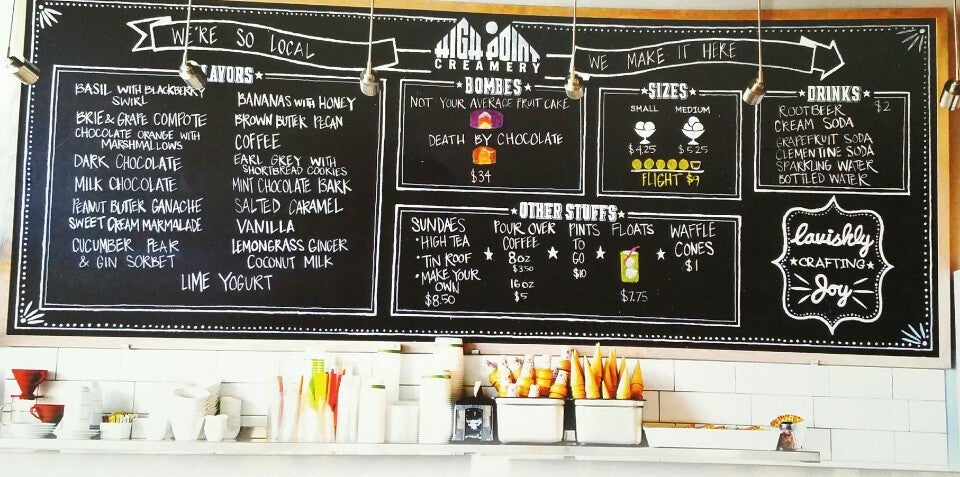 WE'RE SO LOCAL
HIGH POINT
CREAMERY
WE MAKE IT HERE
FLAVORS
BASIL WITH BLACKBERRY
SWIRL
BRIE & GRAPE COMPOTE
CHOCOLATE ORANGE WITH
MARSHMALLOWS
DARK CHOCOLATE
MILK CHOCOLATE
PEANUT BUTTER GANACHE
SWEET CREAM MARMALADE
CUCUMBER PEAR
& GIN SORBET
BANANAS WITH HONEY
BROWN BUTTER PECAN
COFFEE
EARL GREY WITH
SHORTBREAD COOKIES
MINT CHOCOLATE BARK
SALTED CARAMEL
VANILLA
LEMONGRASS GINGER
COCONUT MILK
LIME YOGURT
BOMBES
NOT YOUR AVERAGE FRUIT CAKE
DEATH BY CHOCOLATE
$34
SIZES
SMALL MEDIUM
$4.25 $5.25
FLIGHT $9
DRINKS
ROOTBEER $2
CREAM SODA
GRAPEFRUIT SODA
CLEMENTINE SODA
SPARKLING WATER
BOTTLED WATER
OTHER STUFFS
SUNDAES
• HIGH TEA
• TIN ROOF
• MAKE YOUR
OWN
$8.50
POUR OVER
COFFEE
8OZ
$3.50
16OZ
$5
PINTS
TO
GO
$10
FLOATS
$7.75
WAFFLE
CONES
$1
Lavishly
CRAFTING
Joy